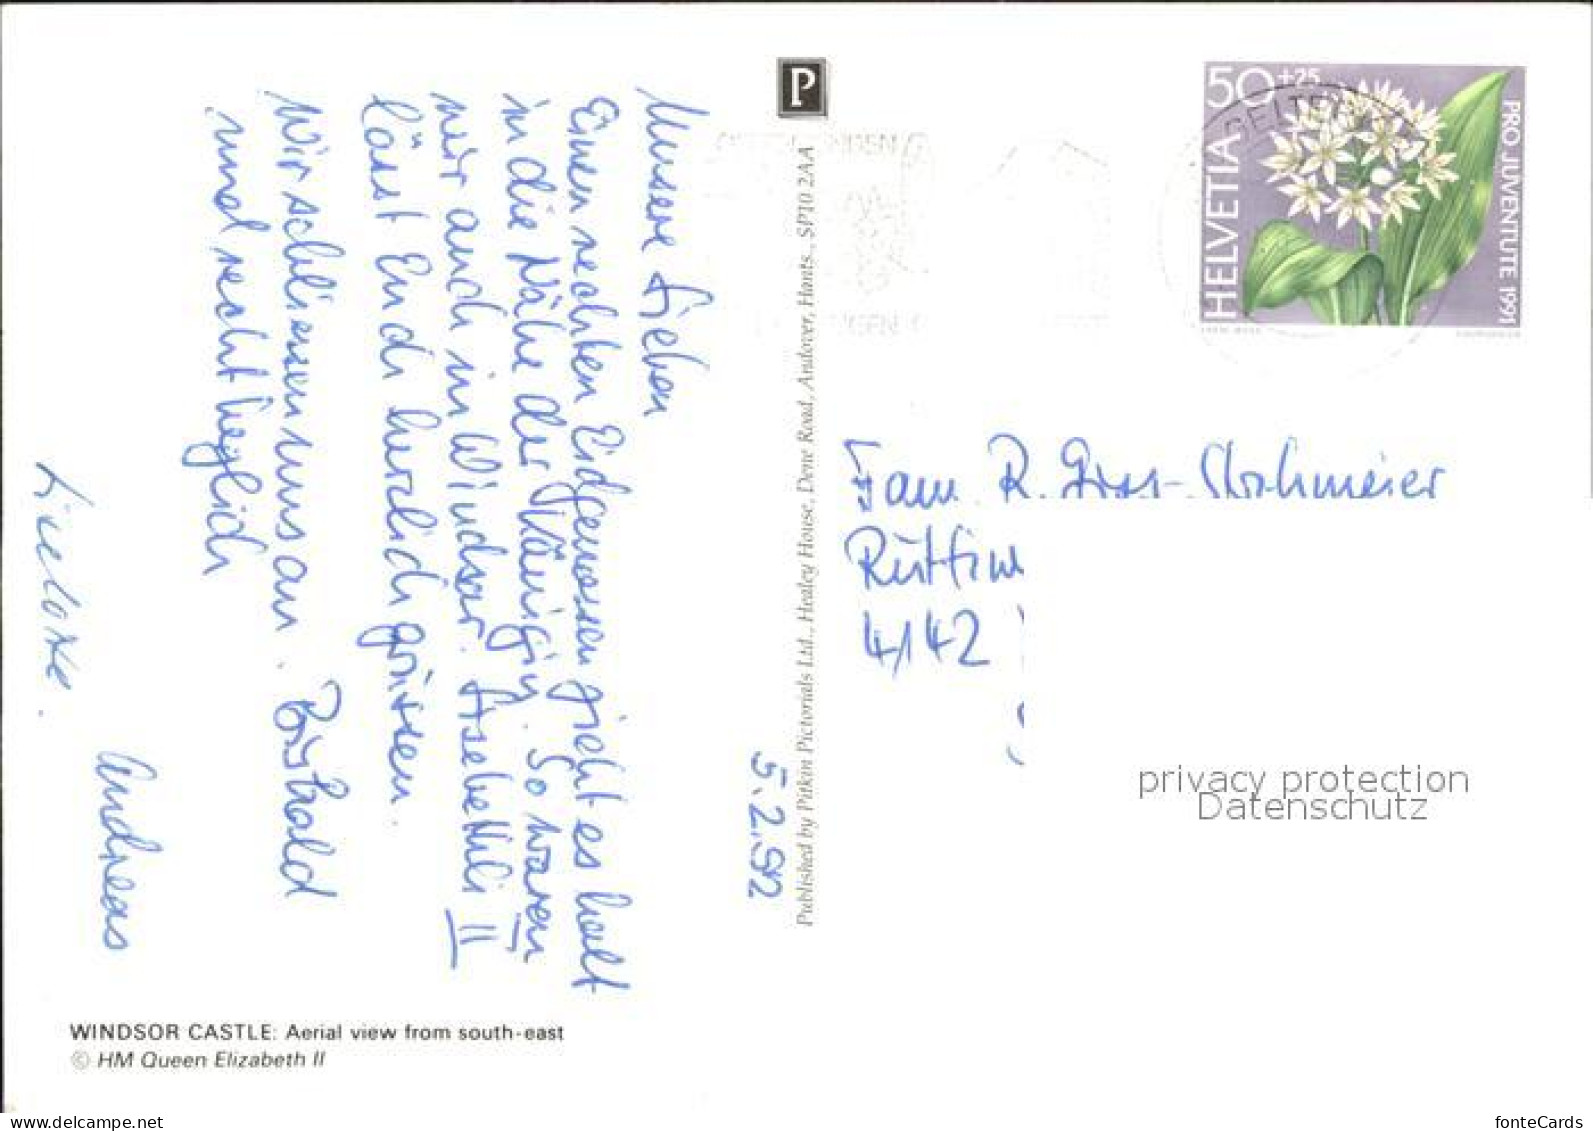 5.2.92
Unsere Lieben
Einen rechten Eidgenossen zieht es halt
in die Nähe der Königin. So waren
wir auch in Windsor. Lisebethli II
lässt Euch herzlich grüssen.
Wir schliessen uns an. Berthold
und recht herzlich
Andreas
Liselotte.
WINDSOR CASTLE: Aerial view from south-east
© HM Queen Elizabeth II
P
Published by Pitkin Pictorials Ltd., Healey House, Dene Road, Andover, Hants., SP10 2AA
50+25
HELVETIA
PRO JUVENTUTE 1991
Fam. R.
4142
privacy protection
Datenschutz
www.delcampe.net
fonteCards